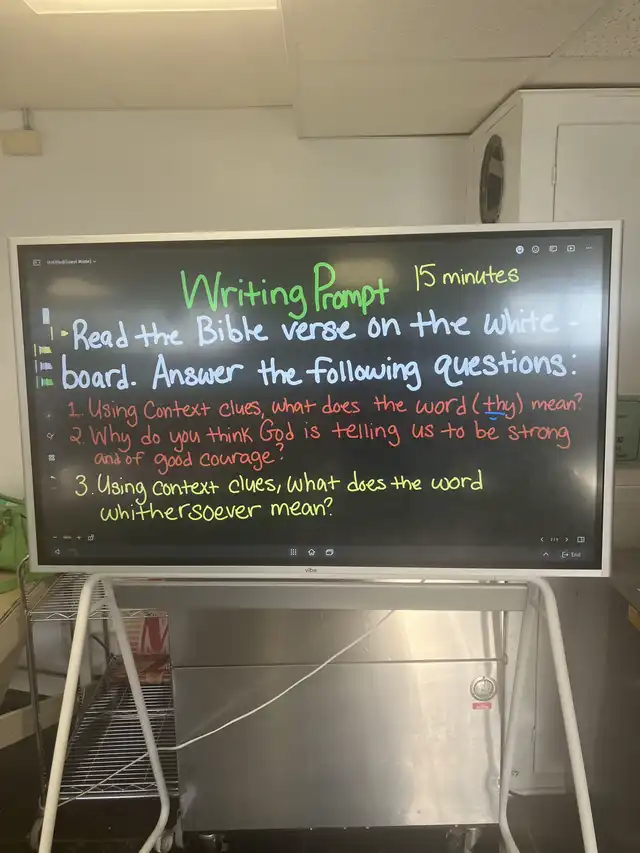 Untitled(Guest Mode)
Writing Prompt 15 minutes
Read the Bible verse on the white-
board. Answer the following questions:
1. Using Context clues, what does the word (thy) mean?
2. Why do you think God is telling us to be strong
and of good courage?
3. Using context clues, what does the word
whithersoever mean?
End
vibe